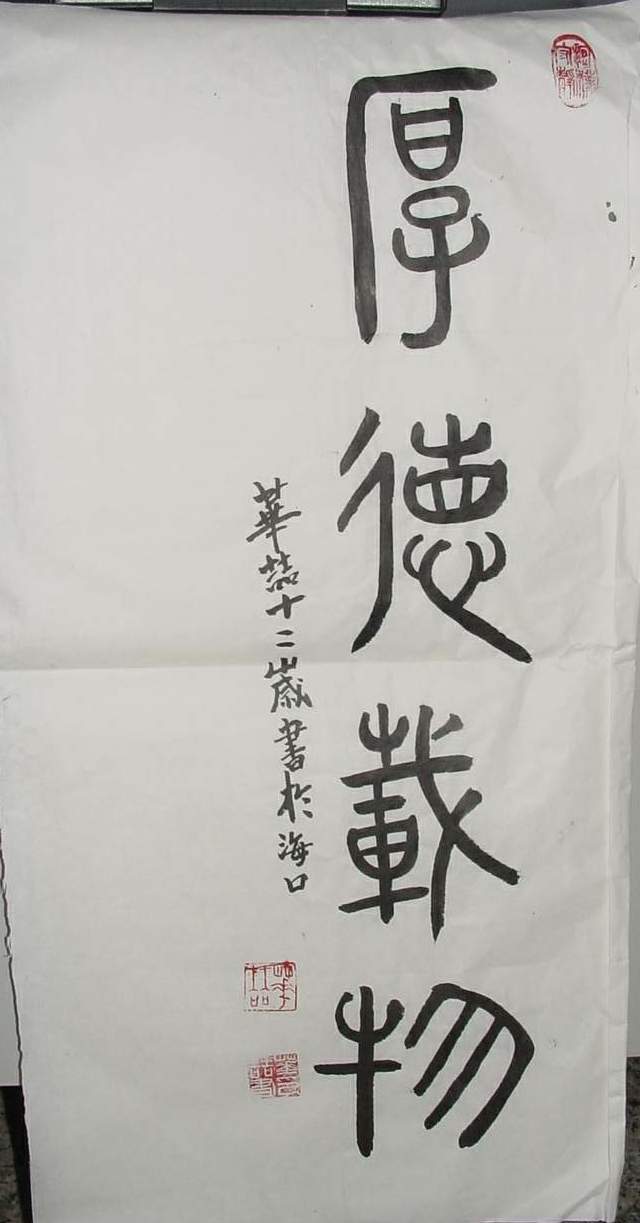 厚德載物
華喆十二歲書於海口